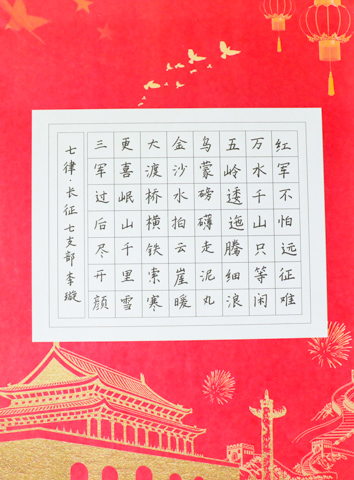 红军不怕远征难
万水千山只等闲
五岭逶迤腾细浪
乌蒙磅礴走泥丸
金沙水拍云崖暖
大渡桥横铁索寒
更喜岷山千里雪
三军过后尽开颜
七律·长征 七支部 李璇